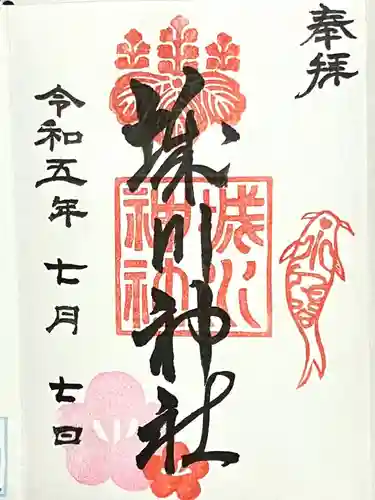 奉拝
城川神社
城川神社
令和五年 七月 七日